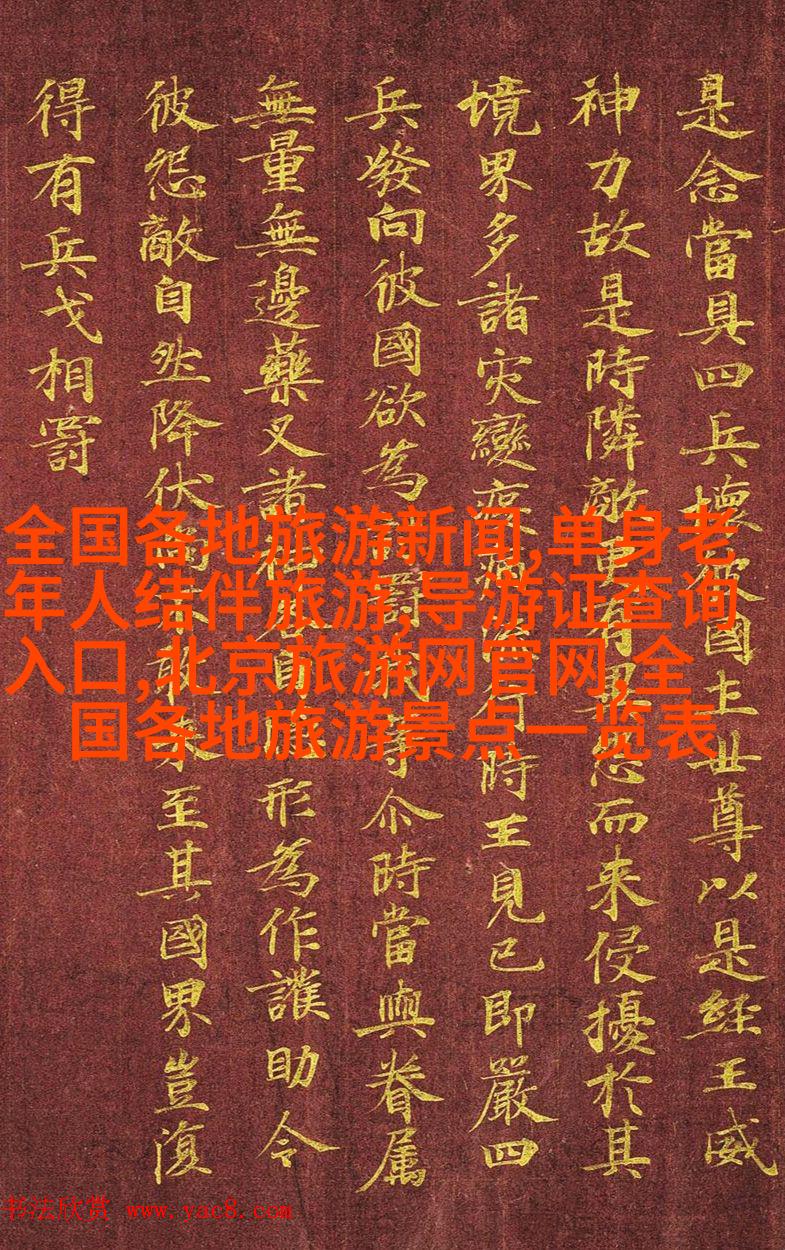 是念當具四兵壞彼國土世尊以是經王威
神力故是時隣敵更有異怨而来侵擾於其
境界多諸灾變疫病流行時王見已即嚴四
兵發向彼國欲為討罸我等尒時當與眷属
無量無邊藥叉諸神各自隱形為作護助令
彼怨敵自然降伏尚不敢来至其國界豈復
得有兵戈相罸
全国各地旅游新闻,单身老
年人结伴旅游,导游证查询
入口,北京旅游网官网,全
国各地旅游景点一览表
书法欣赏 www.yac8.com